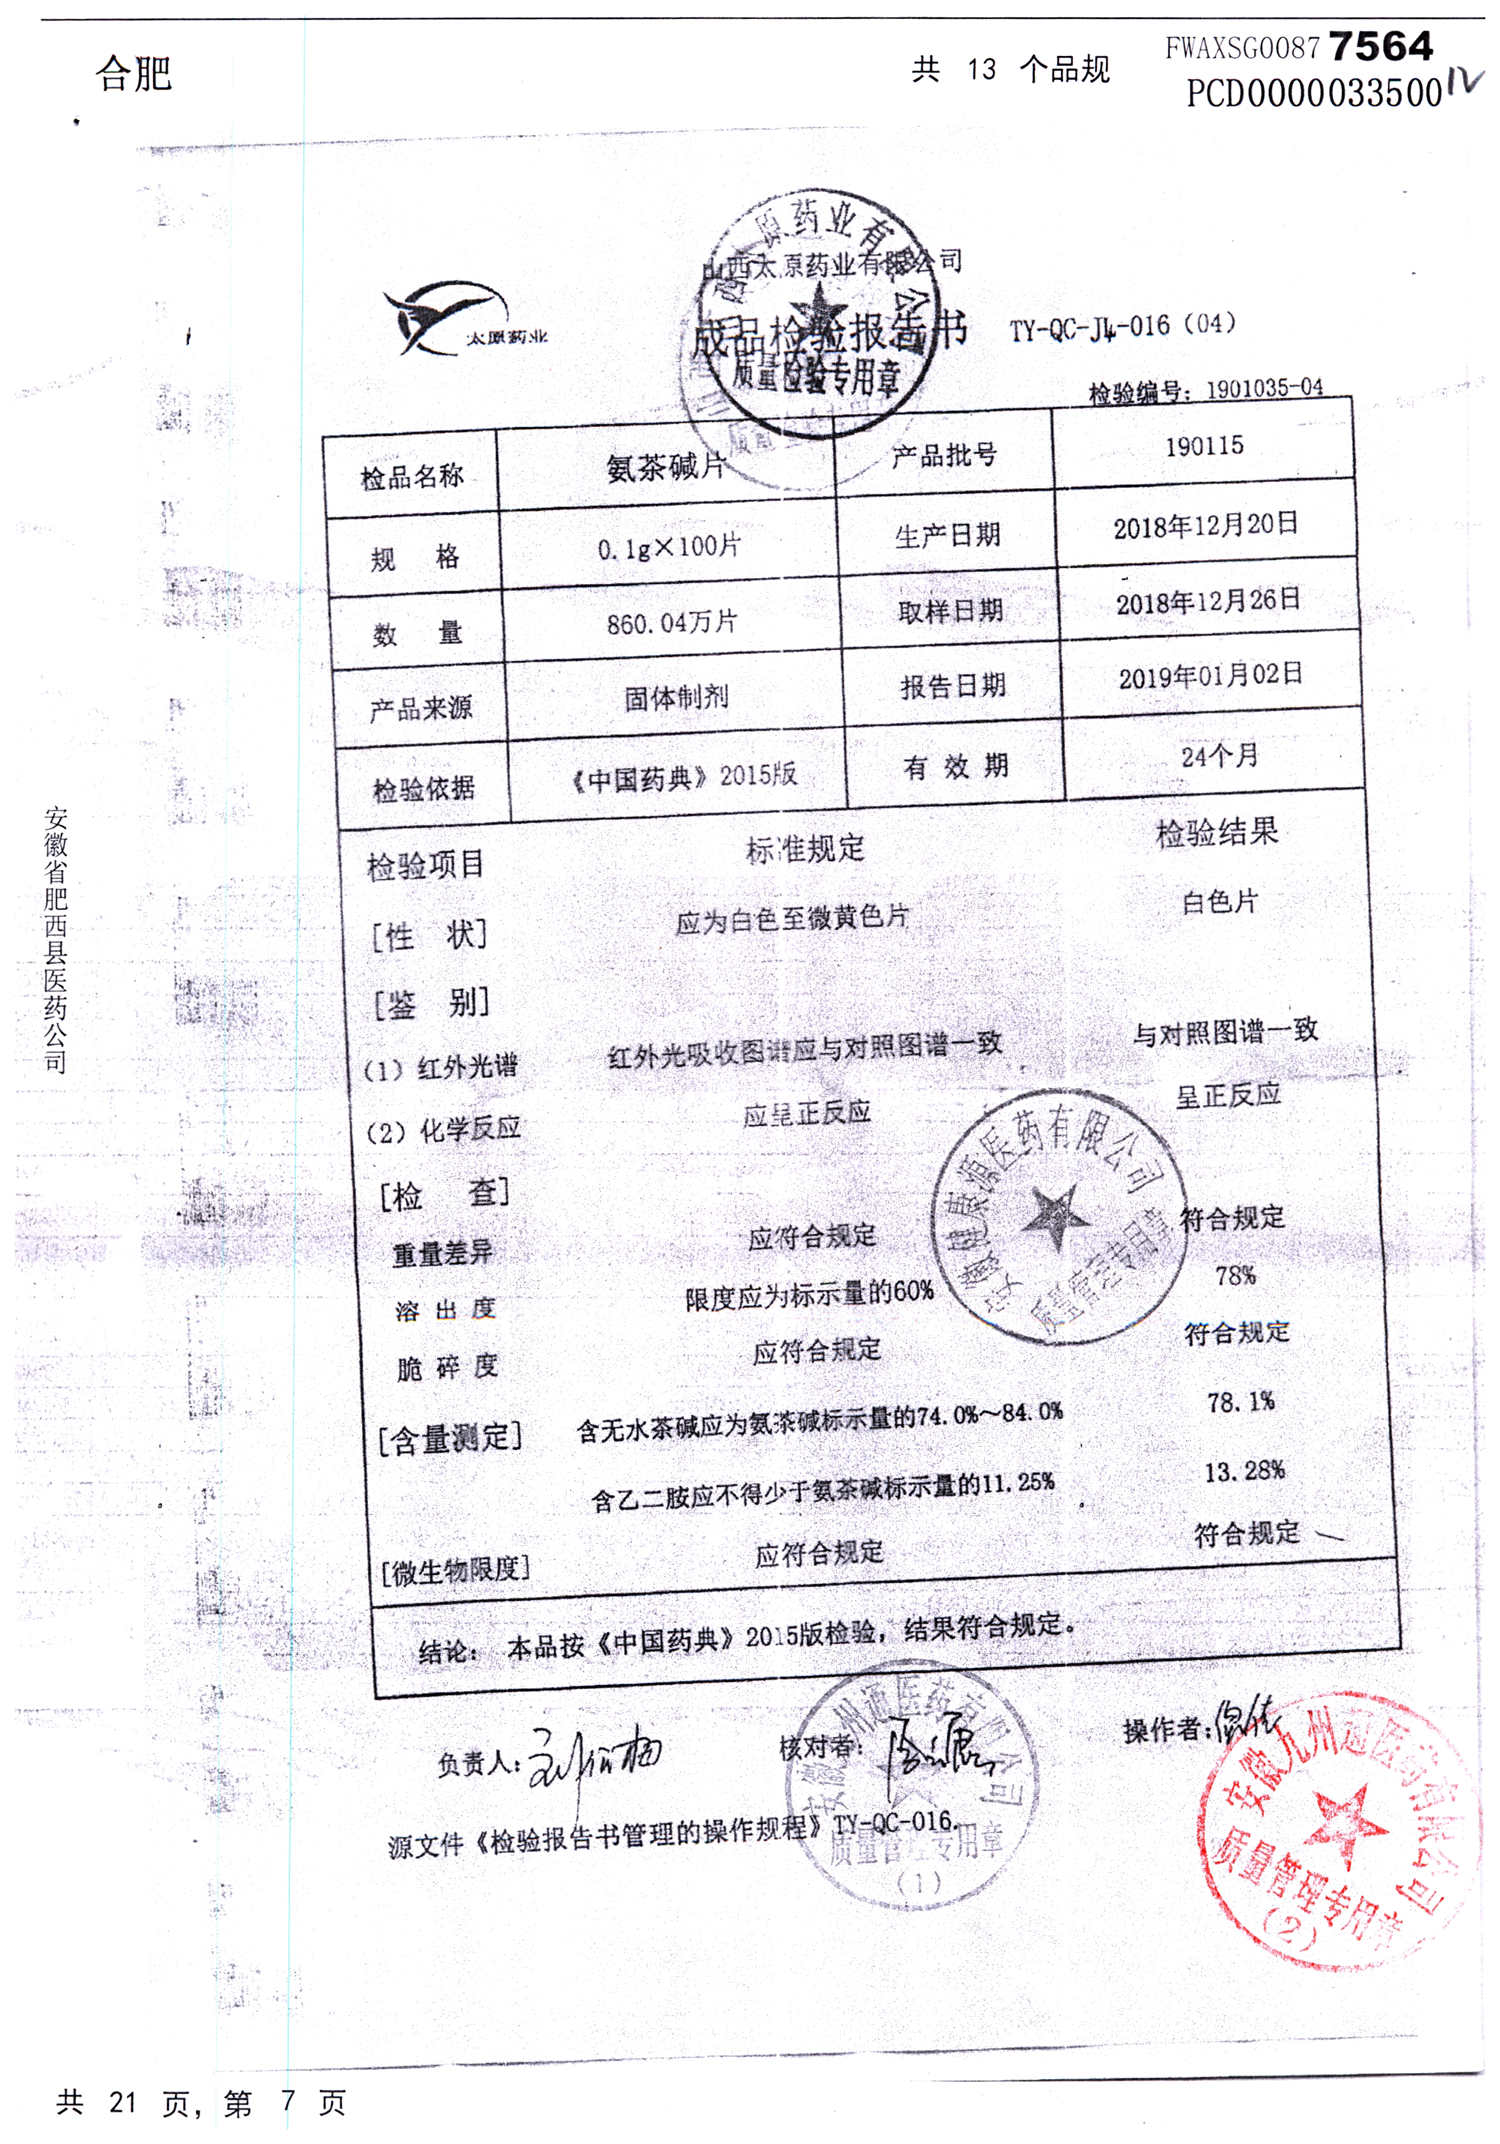 合肥
共 13 个品规
FWAXSG0087 7564
PCD0000033500
山西太原药业有限公司
太原药业
成品检验报告书
TY-QC-J4-016（04）
质量检验专用章
检验编号：1901035-04
检品名称 氨茶碱片 产品批号 190115
规 格 0.1g×100片 生产日期 2018年12月20日
数 量 860.04万片 取样日期 2018年12月26日
产品来源 固体制剂 报告日期 2019年01月02日
检验依据 《中国药典》2015版 有 效 期 24个月
检验项目 标准规定 检验结果
[性 状] 应为白色至微黄色片 白色片
[鉴 别]
（1）红外光谱 红外光吸收图谱应与对照图谱一致 与对照图谱一致
（2）化学反应 应呈正反应 呈正反应
[检 查]
重量差异 应符合规定 符合规定
溶 出 度 限度应为标示量的60% 78%
脆 碎 度 应符合规定 符合规定
[含量测定] 含无水茶碱应为氨茶碱标示量的74.0%～84.0% 78.1%
含乙二胺应不得少于氨茶碱标示量的11.25% 13.28%
[微生物限度] 应符合规定 符合规定
结论： 本品按《中国药典》2015版检验，结果符合规定。
安徽健康源医药有限公司
质量管理专用章
负责人： 核对者： 操作者：
源文件《检验报告书管理的操作规程》TY-QC-016.
安徽九州通医药有限公司
质量管理专用章
（1）
安徽九州通医药有限公司
质量管理专用章
（2）
安徽省肥西县医药公司
共 21 页，第 7 页